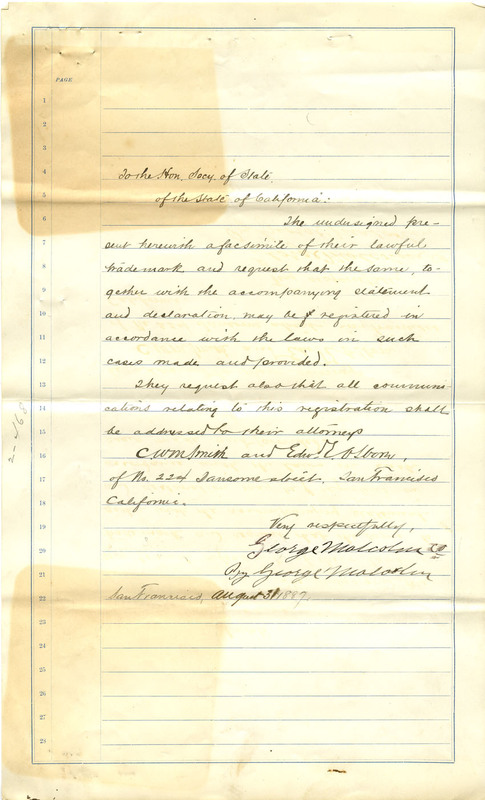 PAGE
1
2
3
4 To the Hon. Secy. of State
5 of the State of California:
6 The undersigned pre-
7 sent herewith a facsimile of their lawful
8 trademark and request that the same, to-
9 gether with the accompanying statement
10 and declaration, may be registered in
11 accordance with the laws in such
12 cases made and provided.
13 They request also that all communi-
14 cations relating to this registration shall
15 be addressed to their attorneys
16 C Wm Smith and Edwd E. Osborn,
17 of No. 224 Sansome street, San Francisco
18 California.
19 Very respectfully,
20 George Malcolm Co
21 By George Malcolm
22 San Francisco, August 31 1887.
23
24
25
26
27
28